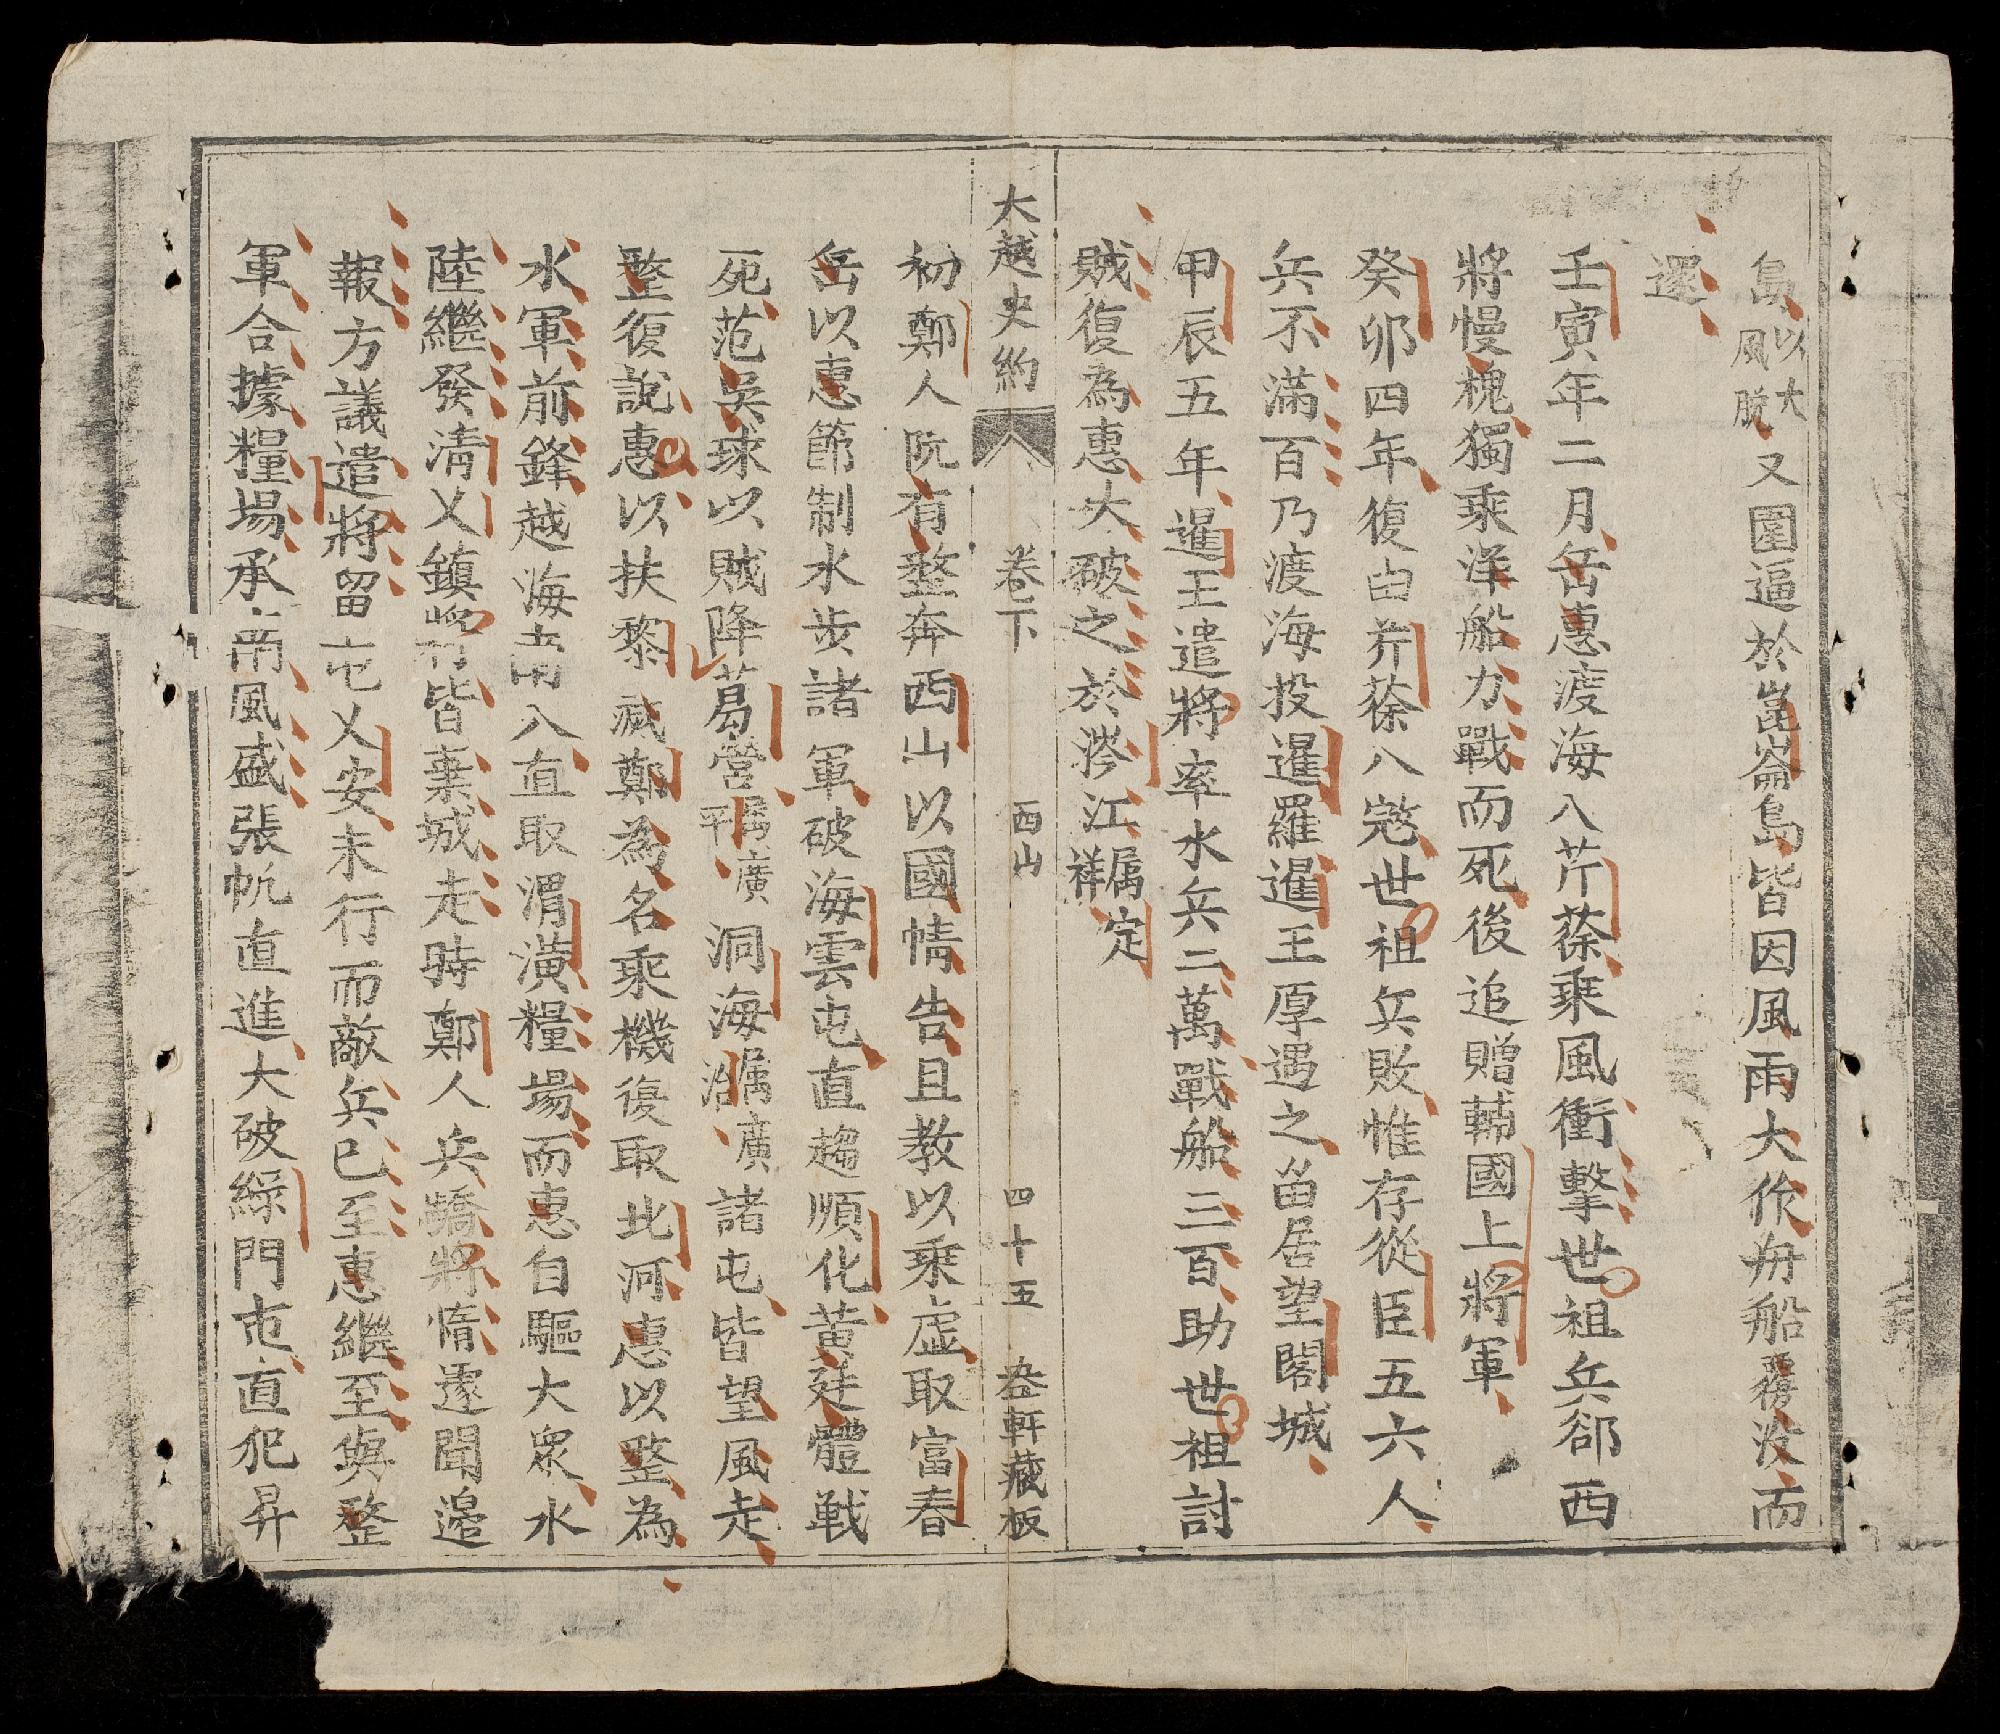 島以大風脫又圍逼於崑崙島皆因風雨大作舟船覆没而
還
壬寅年二月岳惠渡海入芹蒢乘風衝擊世祖兵郤西
將慢槐獨乘洋船力戰而死後追贈輔國上將軍
癸卯四年復由芹蒢入寇世祖兵敗惟存從臣五六人
兵不滿百乃渡海投暹羅暹王厚遇之留居望閣城
甲辰五年暹王遣將率水兵二萬戰船三百助世祖討
賊復為惠大破之於涔江属定祥
大越史約 卷下 西山 四十五 坴軒藏板
初鄭人阮有整奔西山以國情告且教以乘虛取富春
岳以惠節制水步諸軍破海雲屯直趨順化黃廷體戰
死范吳球以賊降葛營属廣平洞海属廣治諸屯皆望風走
整復說惠以扶黎滅鄭為名乘機復取北河惠以整為
水軍前鋒越海南入直取渭潢糧場而惠自驅大衆水
陸繼發清乂鎮將皆棄城走時鄭人兵驕將惰遽聞邉
報方議遣將留屯乂安未行而敵兵已至惠繼至與整
軍合據糧場承南風盛張帆直進大破綠門屯直犯昇